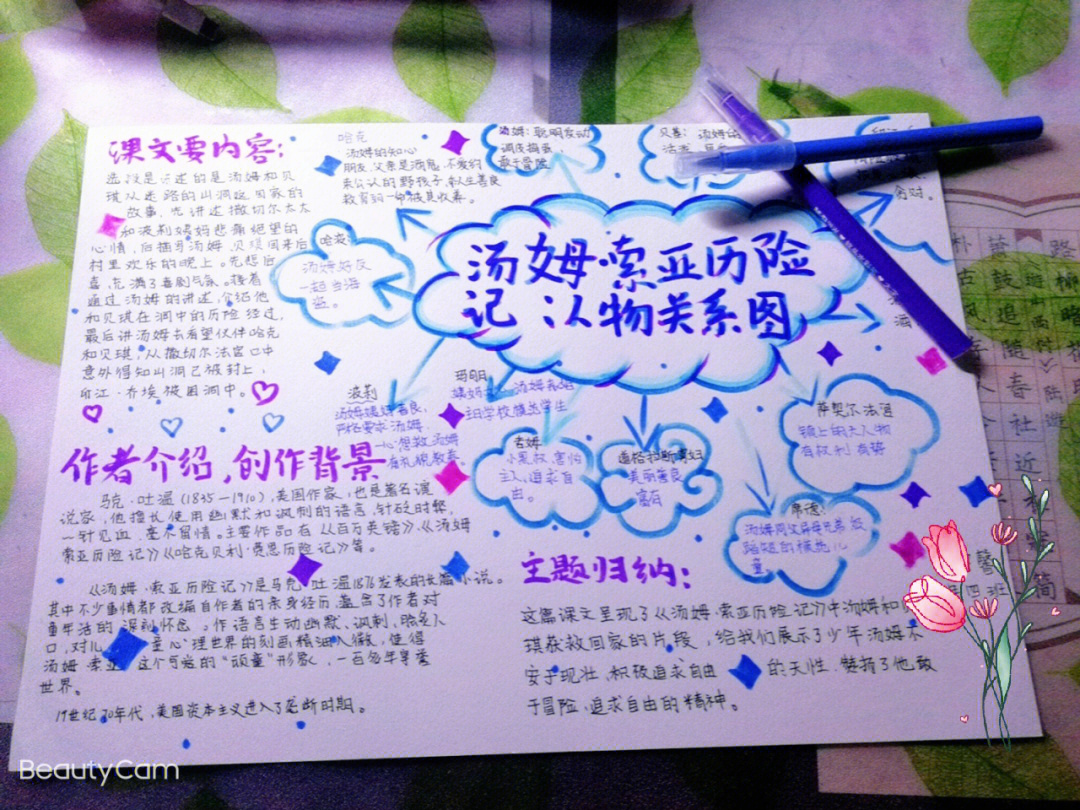 课文要内容:
选段是讲述的是汤姆和贝
琪从迷路的山洞返回家的
故事。先讲述撒切尔太太
和波莉姨妈悲痛绝望的
心情,后描写汤姆、贝琪回来后
村里欢乐的晚上。先悲后
喜,充满了喜剧气氛。接着
通过汤姆的讲述,介绍他
和贝琪在洞中的历险经过,
最后讲汤姆去看望伙伴哈克
和贝琪,从撒切尔法官口中
意外得知山洞已被封上,
印江·乔埃被困洞中。
哈克
汤姆的知心
朋友,父亲是酒鬼,不
公认的野孩子,
汤姆:聪明
调皮捣蛋,
敢于冒险
贝基:
汤姆·索亚历险
记 认物关系图
哈波
汤姆好友
一起当海
盗。
波莉
汤姆姨妈善良,
严格要求汤姆,
一心想教汤姆
有礼貌教养
玛丽
主日学校模范学生
吉姆
小黑奴 害怕
主人,追求自
由。
道格拉斯寡妇
美丽善良
富有
萨契尔法官
镇上的大人物
有权利 有势
席德
汤姆同父异母兄弟
模范儿
童
作者介绍,创作背景
马克·吐温(1835-1910),美国作家,也是著名演
说家,他擅长使用幽默和讽刺的语言,针砭时弊,
一针见血,毫不留情。主要作品有《百万英镑》《汤姆
索亚历险记》《哈克贝利·费恩历险记》等。
《汤姆·索亚历险记》是马克·吐温1876发表的长篇小说。
其中不少事情都改编自作者的亲身经历,蕴含了作者对
童年活的深刻怀念。作语言生动幽默、讽刺,脍炙人
口,对儿童心理世界的刻画精油入微,使得
汤姆·索亚这个可爱的“顽童”形象,一百多年享誉
世界。
19世纪70年代,美国资本主义进入了垄断时期。
主题归纳:
这篇课文呈现了《汤姆·索亚历险记》中汤姆和
琪获救回家的片段,给我们展示了少年汤姆不
安于现壮,积极追求自由的天性,赞扬了他敢
于冒险,追求自由的精神。
BeautyCam